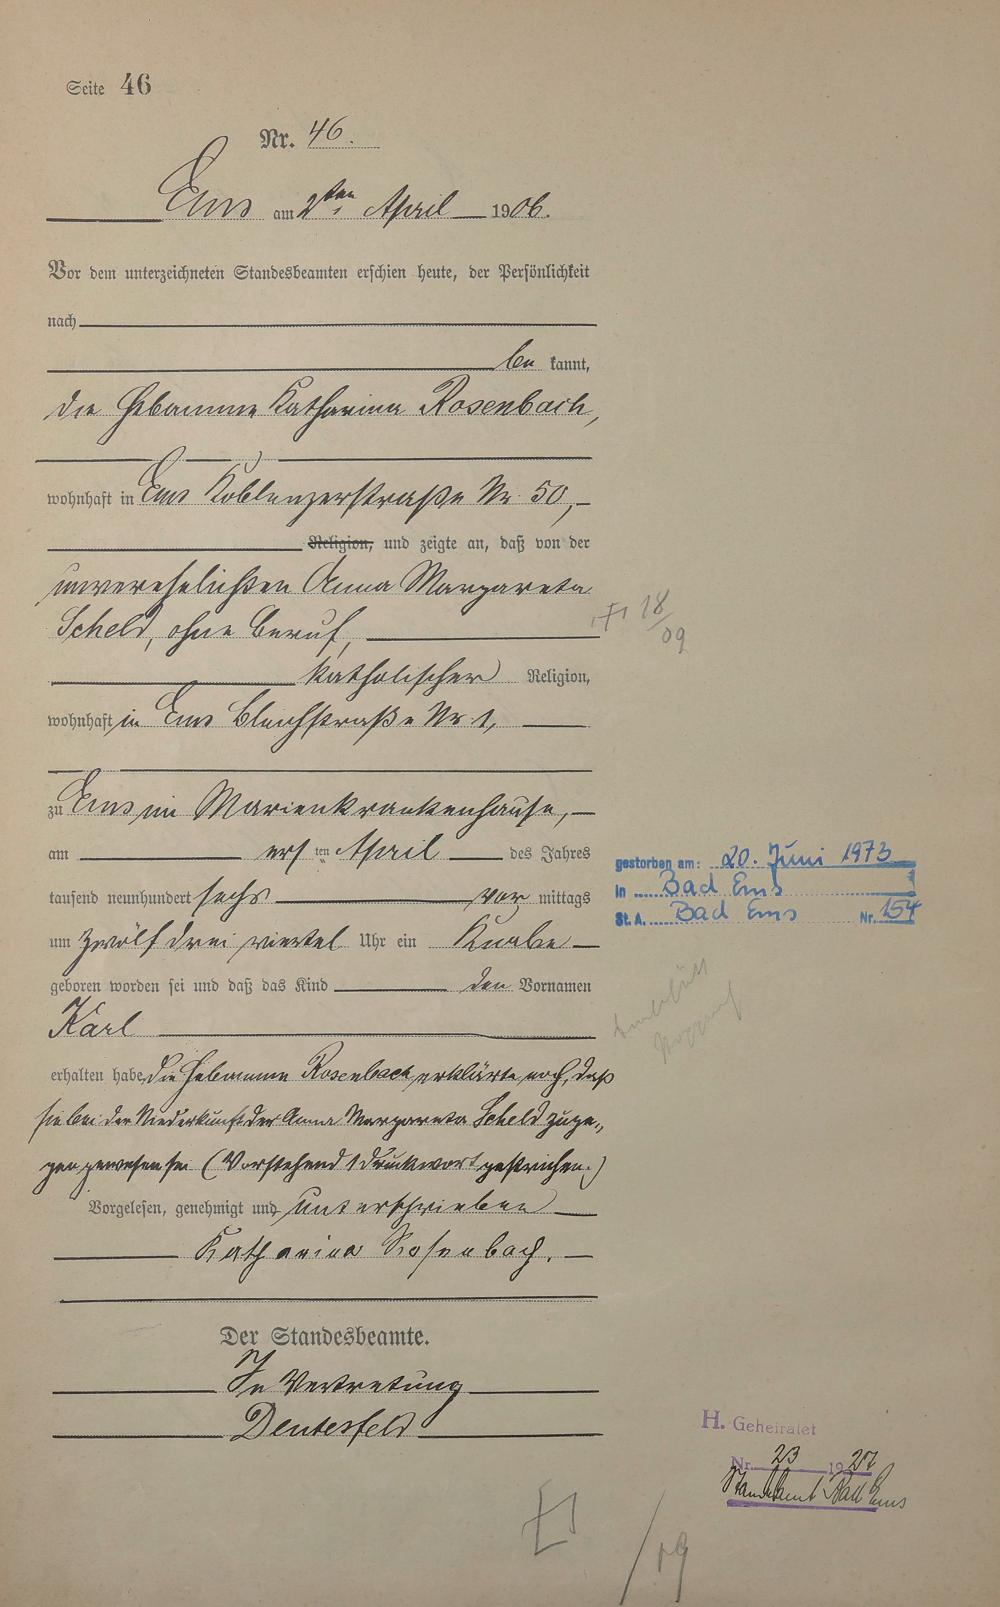 Seite 46
Nr. 46.
Ems am 2ten April 1906.
Vor dem unterzeichneten Standesbeamten erschien heute, der Persönlichkeit
nach
be kannt,
die Hebamme Katharina Rosenbach,
wohnhaft in Ems Koblenzerstraße Nr. 50,
Religion, und zeigte an, daß von der
unverehelichten Anna Margareta
Scheld, ohne Beruf,
18/09
katholischer Religion,
wohnhaft in Ems Bleichstraße Nr. 1,
zu Ems im Marienkrankenhause,
am ersten April des Jahres
tausend neunhundert sechs vor mittags
um zwölf drei viertel Uhr ein Knabe
geboren worden sei und daß das Kind den Vornamen
Karl
erhalten habe, die Hebamme Rosenbach erklärte noch, daß
sie bei der Niederkunft der Anna Margareta Scheld zuge„
gen gewesen sei (Vorstehend 1 Druckwort gestrichen.)
Vorgelesen, genehmigt und unterschrieben
Katharina Rosenbach.
Der Standesbeamte.
In Vertretung
Deutesfeld
gestorben am: 20. Juni 1973
in Bad Ems
St. A. Bad Ems Nr. 154
H. Geheiratet
Nr. 23 1927
Standesamt Bad Ems